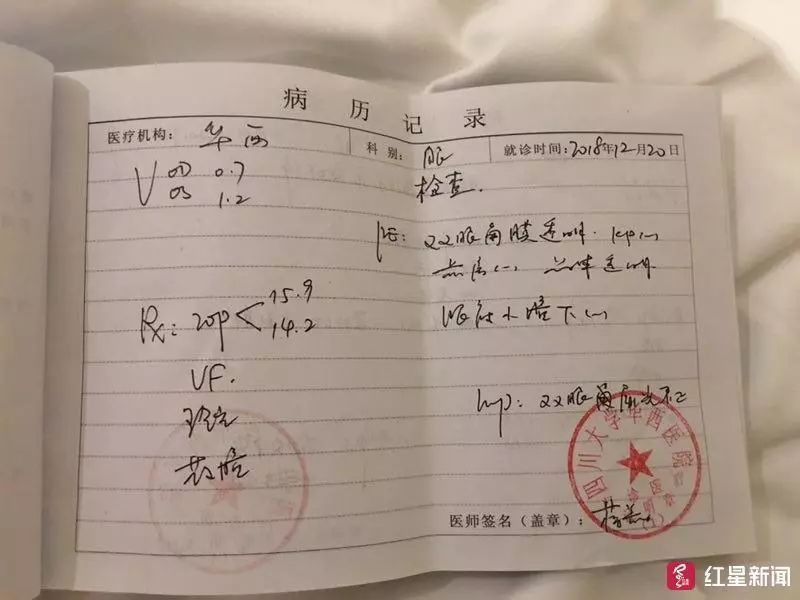 病 历 记 录
医疗机构: 华西 科 别: 眼 就诊时间: 2018年12月20日
V OD 0.7
OS 1.2
检查.
PE: 双眼角膜透明. kp(-)
晶体透明
眼底小瞳下(-)
Rx: 15.9
14.2
VF.
Imp: 双眼屈光不正
四川大学华西医院
医师签名(盖章):
红星新闻